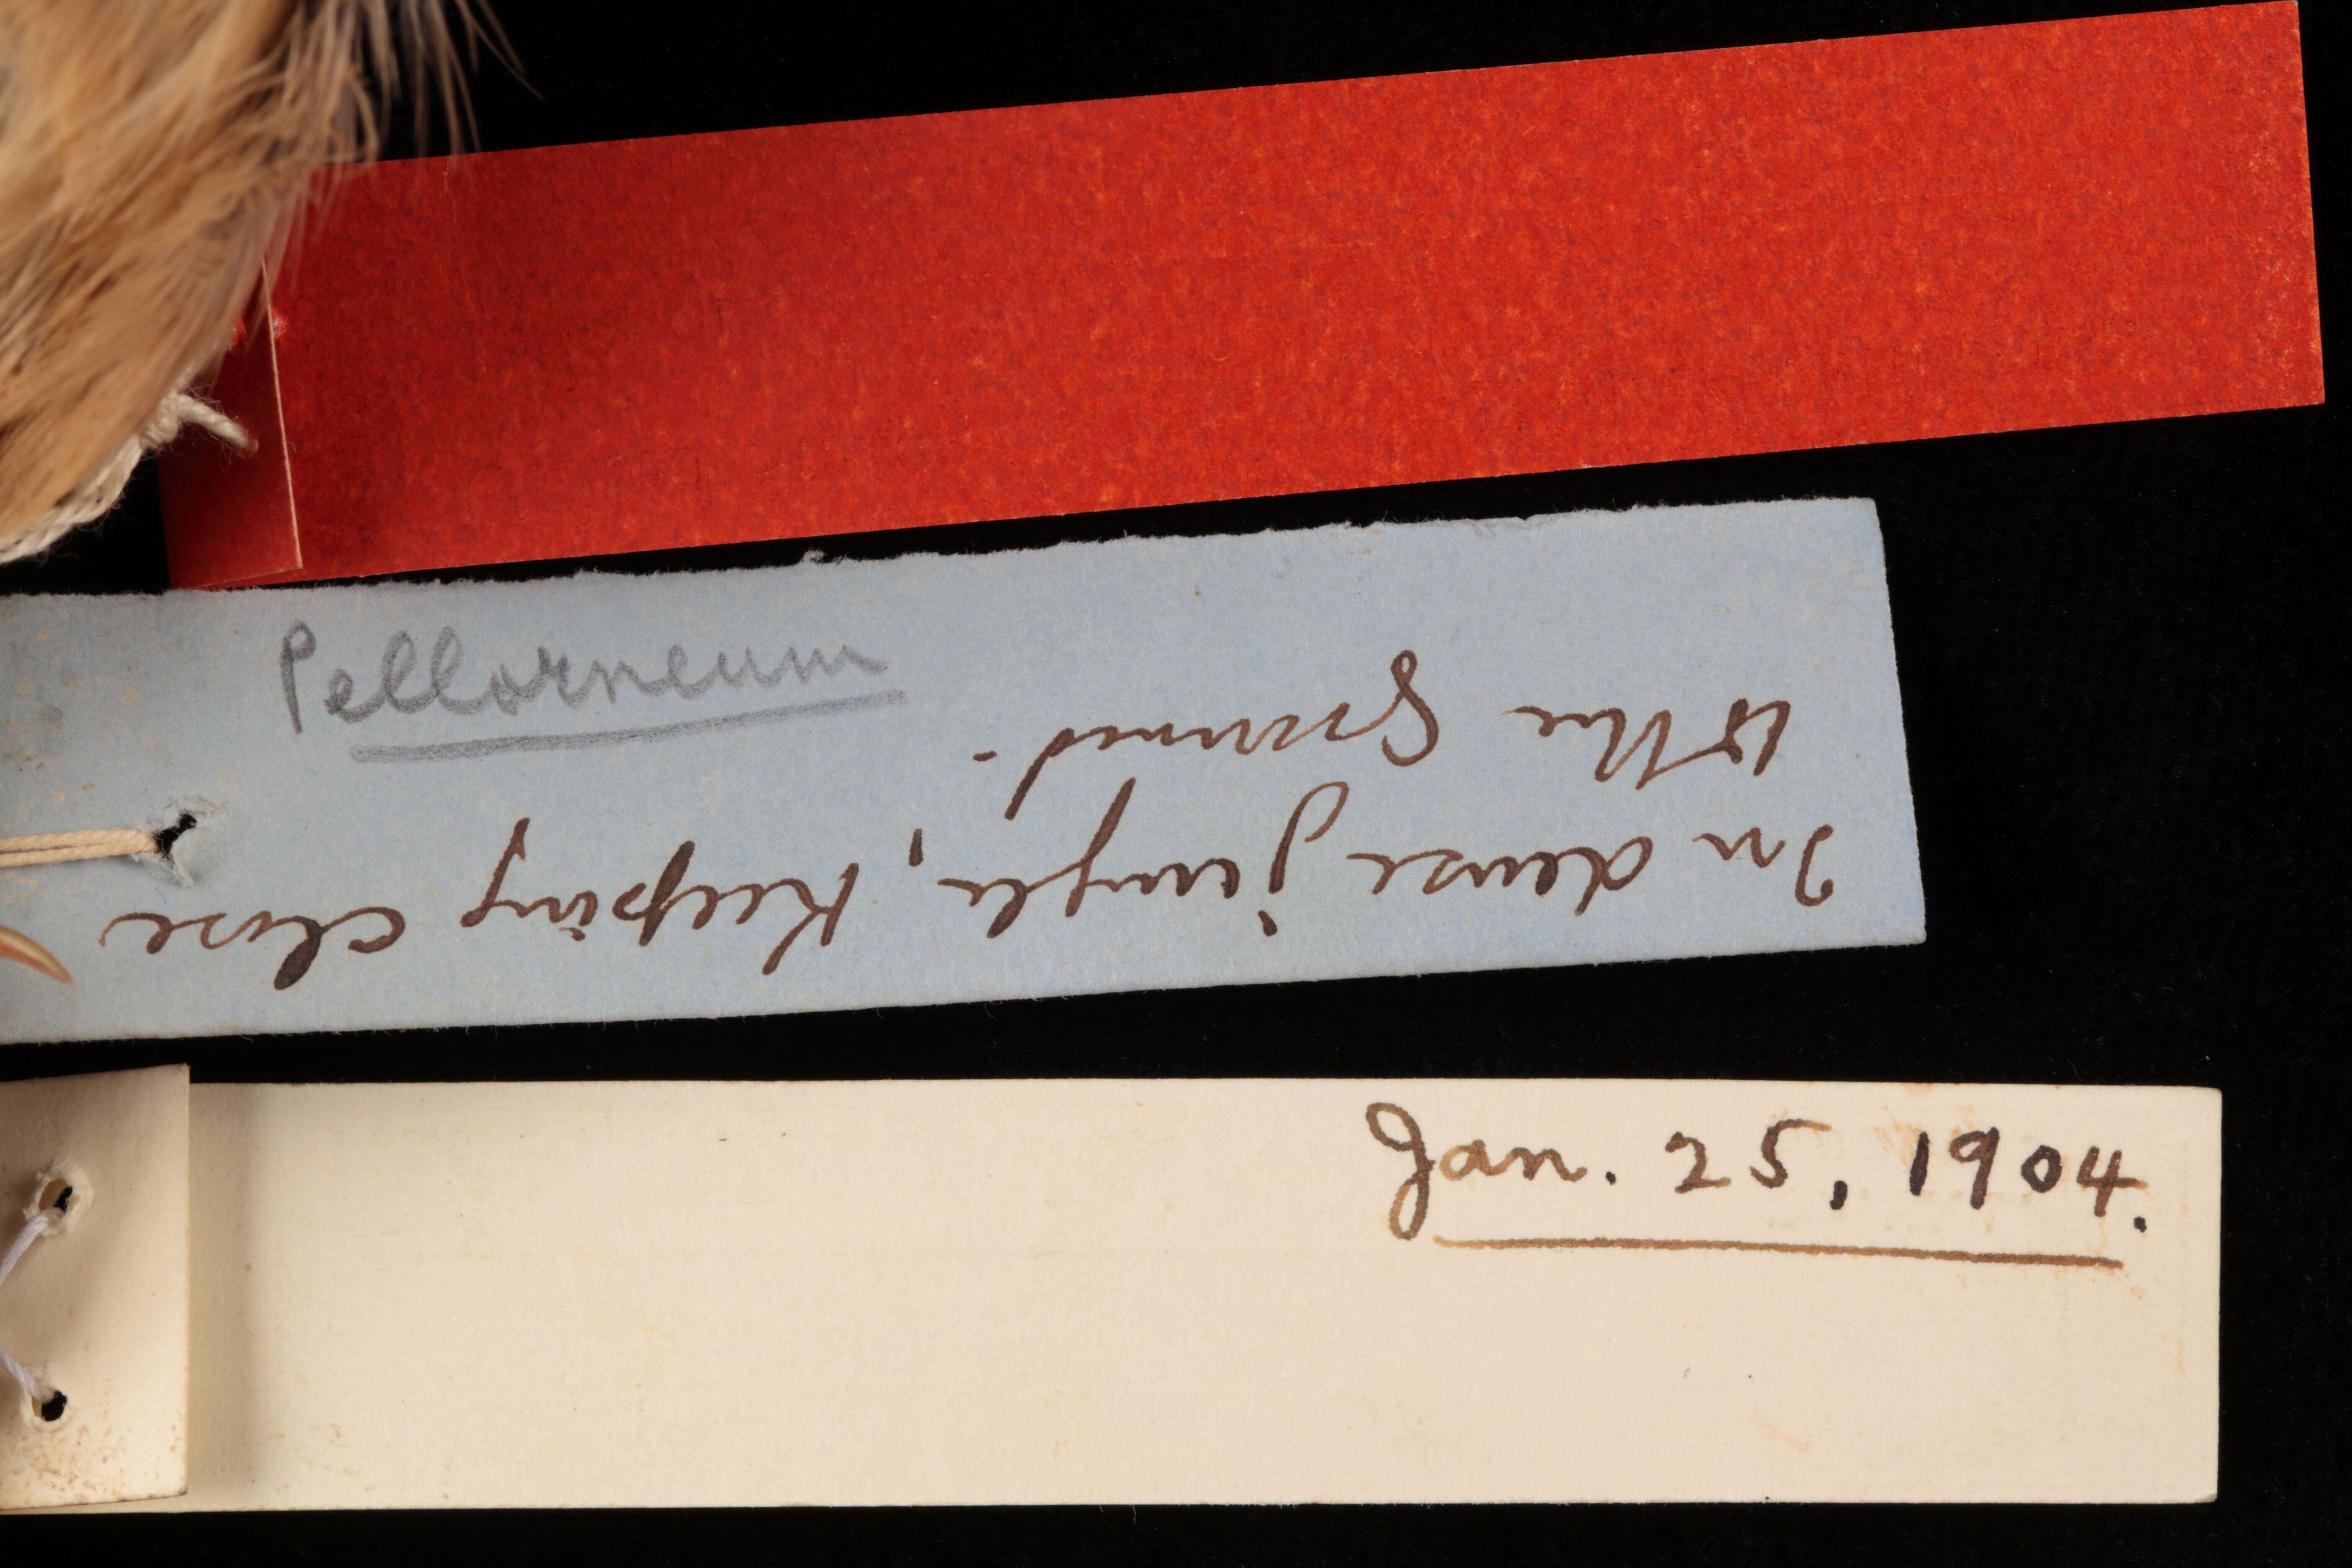 Pellorneum
In dense jungle, keeping close
to the ground.
Jan. 25, 1904.